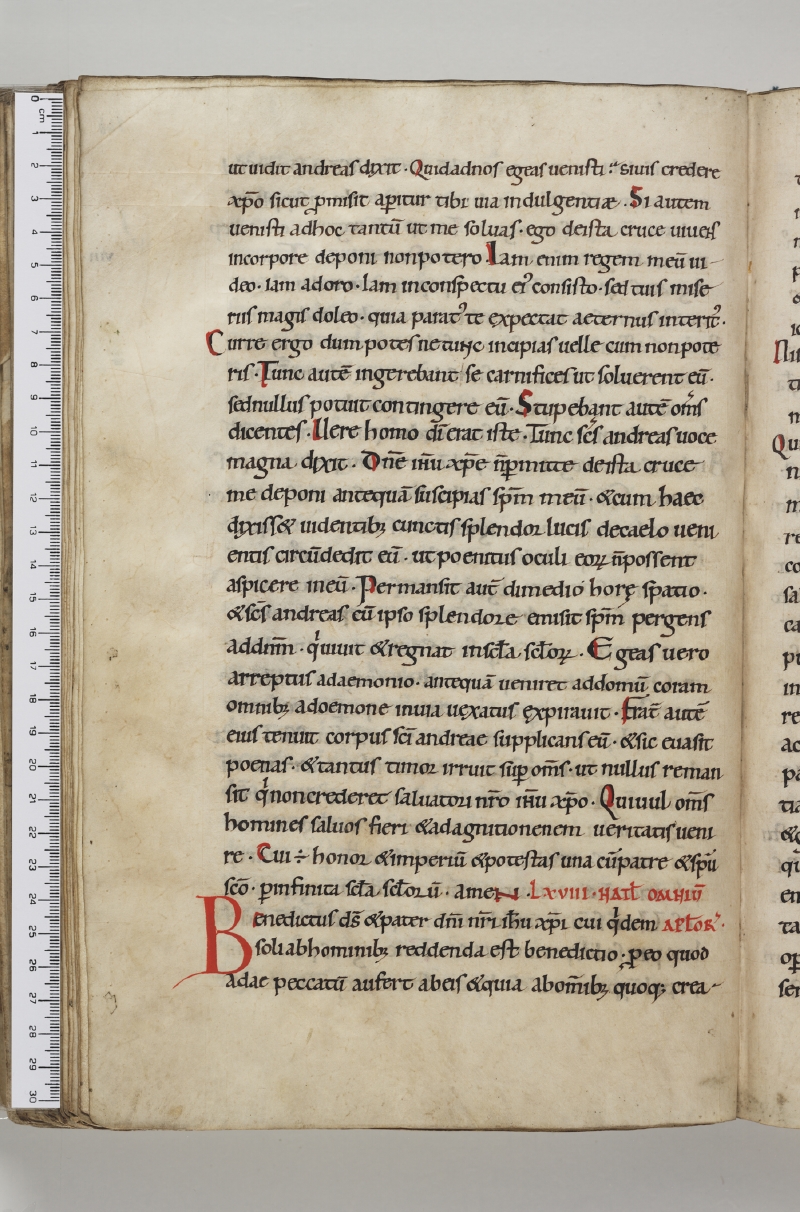 ut uidit andreas dixit · Quid ad nos egeas uenisti : siuis credere
xp̄o sicut ꝓmisit apitur tibi uia indulgentiæ · Si autem
uenisti adhoc tantū ut me soluas · ego deista cruce uiuens
incorpore deponi nonpotero · Iam enim regem meū ui-
deo · iam adoro · Iam inconspectu eiꝰ consisto · sed tuis mise
riis magis doleo · quia paratꝰ te expectat aeternus interitꝰ ·
Curre ergo dum potes ne tunc incipias uelle cum non pote
ris · Tunc autē ingerebant se carnifices ut soluerent eū ·
sed nullus potuit contingere eū · Stupebant autē om̄s
dicentes · Uere homo dī erat iste · Tunc sc̄s andreas uoce
magna dixit · Dn̄e ih̄u xp̄e n̄ ꝑmitte deista cruce
me deponi antequā suscipias sp̄m meū · &cum haec
dixiss& uidentibꝫ cunctis splendor lucis decaelo ueni
entis circūdedit eū · ut poenitus oculi eoꝝ n̄ possent
aspicere ineū · Permansit autē dimedio horę spatio ·
&sc̄s andreas cū ipso splendore emisit sp̄m pergens
addn̄m · qͥ uiuit &regnat insc̄la · sc̄loꝝ · Egeas uero
arreptus adaemonio · antequā ueniret addomū coram
omnibꝫ adoemone inuia uexatus expirauit · frat̄ autē
eius tenuit corpus sc̄i andreae supplicans eū · &sic euasit
poenas · &tantus timor irruit sup om̄s · ut nullus reman
sit qͥ noncrederet saluatori nr̄o ih̄u xp̄o · Qui uul om̄s
homines saluos fieri &adagnitionenem ueritatis ueni
re · Cui ÷ honor &imperiū &potestas una cū patre &sp̄u
sc̄o · ꝑinfinita sc̄la sc̄loꝝū · amen · LXVIII · NAT̄L OMNIŪ
Benedictus ds̄ &pater dn̄i nr̄i ih̄u xp̄i cui qͥdem AP̄LOꝜ ·
soli abhominibꝫ reddenda est benedictio · ꝑeo quod
adae peccatū aufert abeis &quia abom̄ibꝫ quoqꝫ crea-